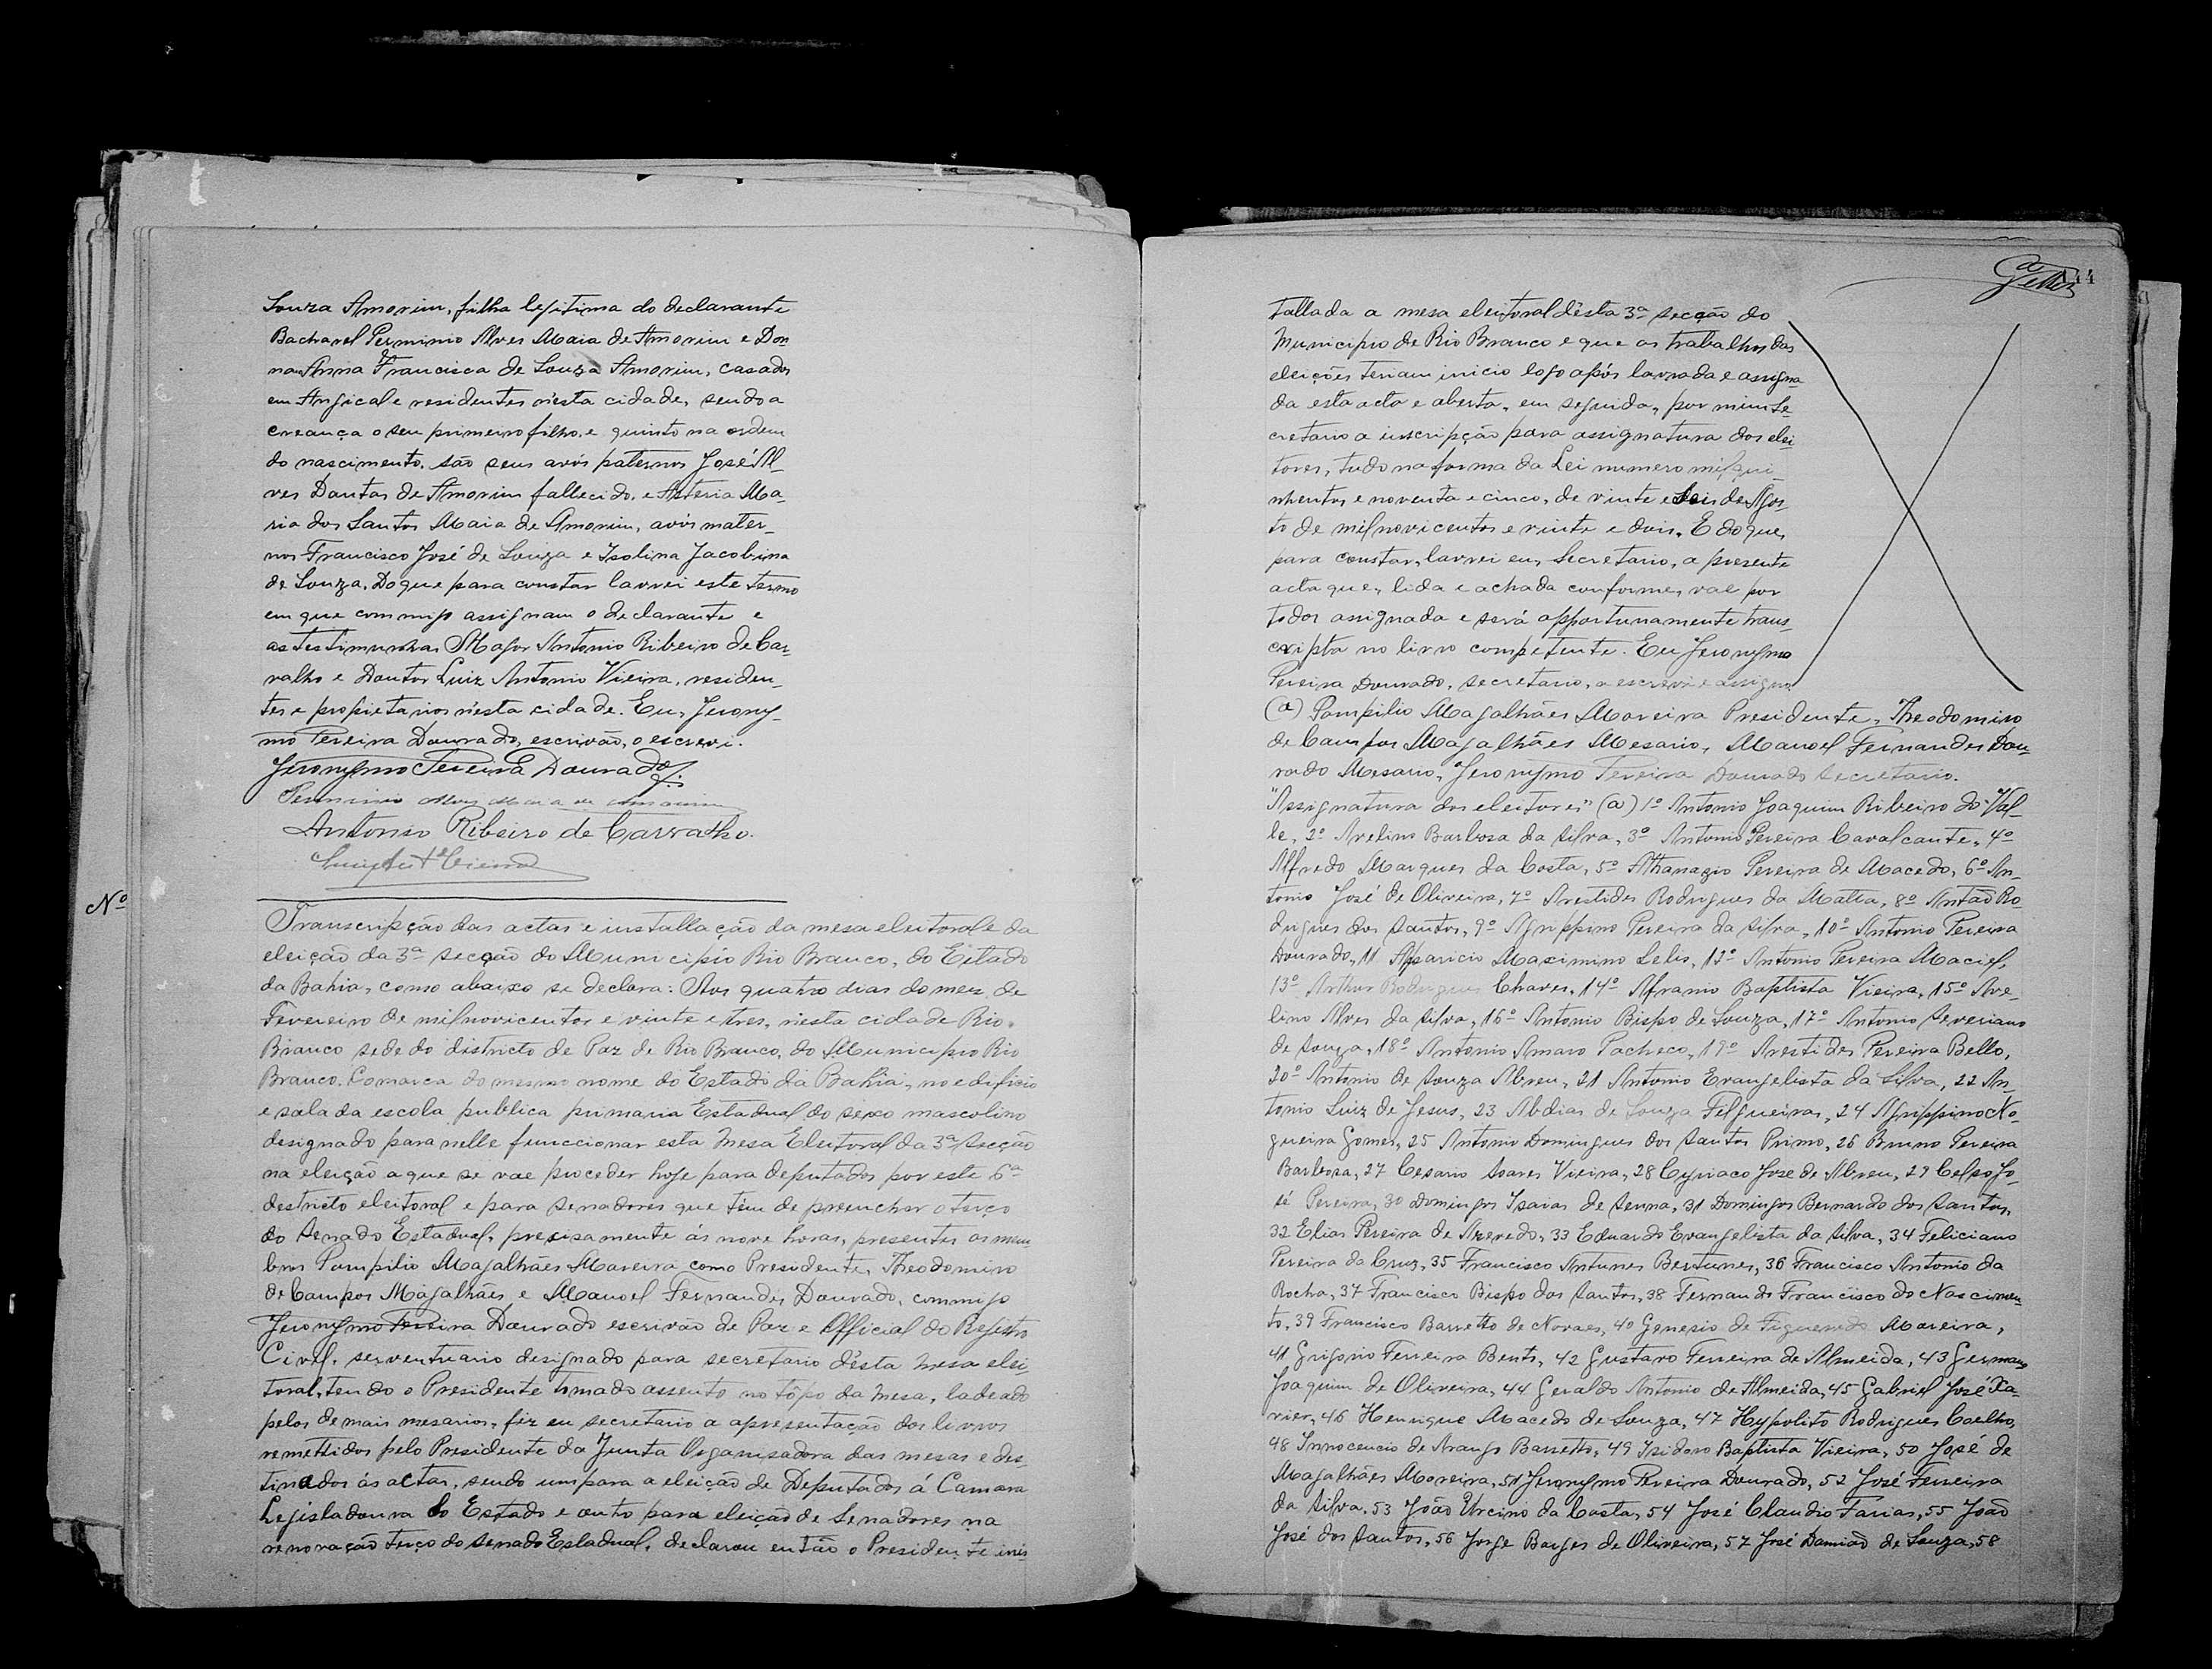 Souza Amorim, filha legitima do declarante
Bacharel Perminio Alves Maia de Amorim e Don
na Anna Francisca de Souza Amorim, casados
em Angical e residentes n'esta cidade, sendo a
creança o seu primeiro filho, e quinto na ordem
do nascimento. São seus avós paternos José Al_
ves Dantas de Amorim fallecido, e Asteria Ma_
ria dos Santos Maia de Amorim, avós mater_
nos Francisco José de Souza e Isolina Jacobina
de Souza. Do que para constar lavrei este termo
em que commigo assignam o declarante e
as testimunhas Major Antonio Ribeiro de Car_
valho e Doutor Luiz Antonio Vieira, residen_
tes e propietarios n'esta cidade. Eu, Jerony_
mo Pereira Dourado, escrivão, o escrevi.
Jeronymo Pereira Dourado
Perminio Alves Maia de Amorim
Antonio Ribeiro de Carvalho.
Nº
Transcripção das actas e installação da mesa eleitoral e da
eleição da 3ª secção do Municipio Rio Branco, do Estado
da Bahia, como abaixo se declara: Aos quatro dias do mez de
Fevereiro de mil novicentos e vinte e tres, n'esta cidade Rio
Branco sede do districto de Paz de Rio Branco, do Municipio Rio
Branco. Comarca do mesmo nome do Estado da Bahia, no edificio
e sala da escola publica primaria Estadual do sexo mascolino
designado para nelle funccionar esta Mesa Eleitoral da 3ª Secção
na eleição a que se vae proceder hoje para deputados por este 6º
destricto eleitoral e para senadores que têm de preencher o terço
do Senado Estadual, precisamente ás nove horas, presentes os mem_
bros Pompilio Magalhães Moreira como Presidente, Theodomiro
de Campos Magalhães e Manoel Fernandes Dourado, commigo
Jeronymo Pereira Dourado escrivão de Paz e Official do Registro
Civil, serventuario designado para secretario d'esta Mesa elei
toral, tendo o Presidente tomado assento no tôpo da Mesa, ladeado
pelos demais mesarios, fiz eu secretario a apresentação dos livros
remettidos pelo Presidente da Junta Organisadora das mesas e des_
tinados ás actas, sendo um para a eleição de Deputados á Camara
Legisladoura do Estado e outo para eleição de Senadores na
renovação terço do Senado Estadual, declarou então o Presidente ins
144
tallada a mesa eleitoral désta 3ª secção do
Municipio de Rio Branco e que os trabalhos das
eleições teriam inicio logo após lavrada e assigna
da esta acta e aberta, em seguida, por mim Se_
cretario a inscripção para assignatura dos elei
tores, tudo na forma da Lei numero mil qui
nhentos e noventa e cinco, de vinte e seis de Agos_
to de mil novicentos e vinte e dois. E do que,
para constar, lavrei eu, Secretario, a presente
acta que, lida e achada conforme, vae por
todos assignada e será opportunamente trans_
cripta no livro competente. Eu Jeronymo
Pereira Dourado, secretario, o escrevi e assigno.
(a) Pompilio Magalhães Moreira Presidente, Theodomiro
de Campos Magalhães Mesario, Manoel Fernandes Dou_
rado Mesario, Jeronymo Pereira Dourado Secretario.
"Assignatura dos eleitores" (a) 1º Antonio Joaquim Ribeiro do Val_
le, 2º Avelino Barbosa da Silva, 3º Antonio Pereira Cavalcante, 4º
Alfredo Marques da Costa, 5º Athanazio Pereira de Macedo, 6º An_
tonio José de Oliveira, 7º Arestides Rodrigues da Matta, 8º Antão Ro_
drigues dos Santos, 9º Agrippino Pereira da Silva, 10º Antonio Pereira
Dourado, 11 Apparicio Maximino Lelis, 12º Antonio Pereira Maciel,
13º Arthur Rodrigues Chaves, 14º Afranio Baptista Vieira, 15º Ave_
lino Alves da Silva, 16º Antonio Bispo de Souza, 17º Antonio Severiano
de Souza, 18º Antonio Amaro Pacheco, 19º Arestides Pereira Bello,
20º Antonio de Souza Abreu, 21 Antonio Evangelista da Silva, 22 An_
tonio Luiz de Jesus, 23 Abdias de Souza Filgueiras, 24 Agrippino No_
gueira Gomes, 25 Antonio Domingues dos Santos Primo, 26 Bruno Pereira
Barbosa, 27 Cesario Soares Vieira, 28 Cyriaco Jose de Abreu, 29 Celso Jo_
sé Pereira, 30 Domingos Isaias de Senna, 31 Domingos Bernardo dos Santos,
32 Elias Pereira de Azevedo, 33 Eduardo Evangelista da Silva, 34 Feliciano
Pereira da Cruz, 35 Francisco Antunes Bertunes, 36 Francisco Antonio da
Rocha, 37 Francisco Bispo dos Santos, 38 Fernando Francisco do Nascimen_
to, 39 Francisco Barretto de Novaes, 40 Genesio de Figueredo Moreira,
41 Grigorio Ferreira Bento, 42 Gustavo Ferreira de Almeida, 43 Germano
Joaquim de Oliveira, 44 Geraldo Antonio de Almeida, 45 Gabriel José Xa_
vier, 46 Henrique Macedo de Souza, 47 Hypolito Rodrigues Coelho,
48 Innocencio de Araujo Barretto, 49 Isidoro Baptista Vieira, 50 José de
Magalhães Moreira, 51 Jeronymo Pereira Dourado, 52 José Ferreira
da Silva, 53 João Urcino da Costa, 54 José Claudio Farias, 55 João
José dos Santos, 56 Jorge Borges de Oliveira, 57 José Damião de Souza, 58